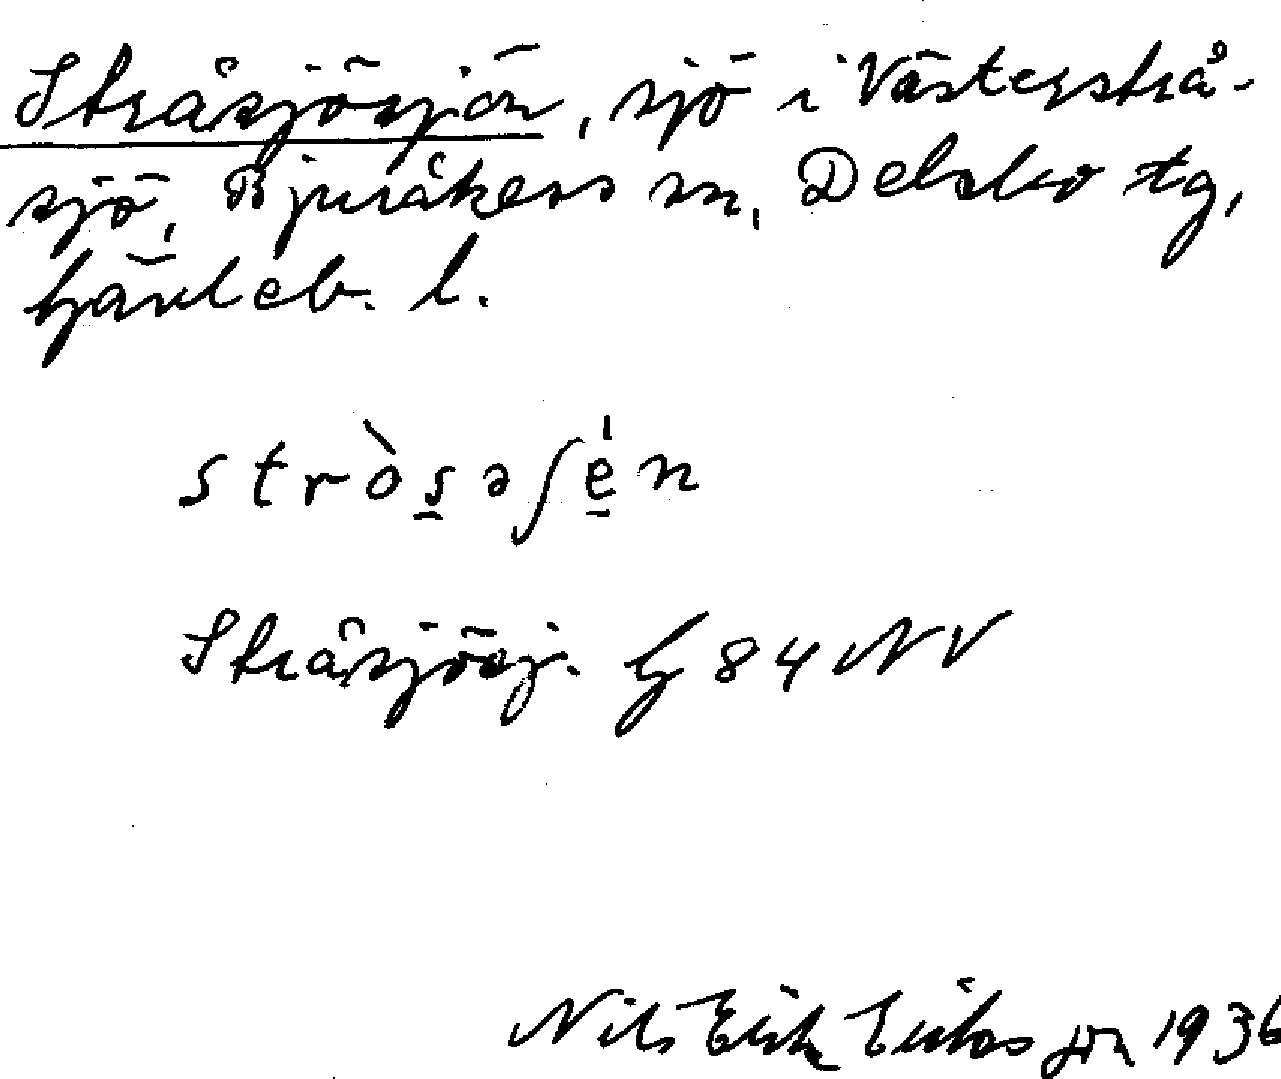 Stråsjösjön, sjö i Västerstrå-
sjö, Bjuråkers sn, Delsbo tg,
Gävleb. l.
stròs̲əʃé̲n
Stråsjösj. G 84 NV
Nils Erik Eriksson 1936